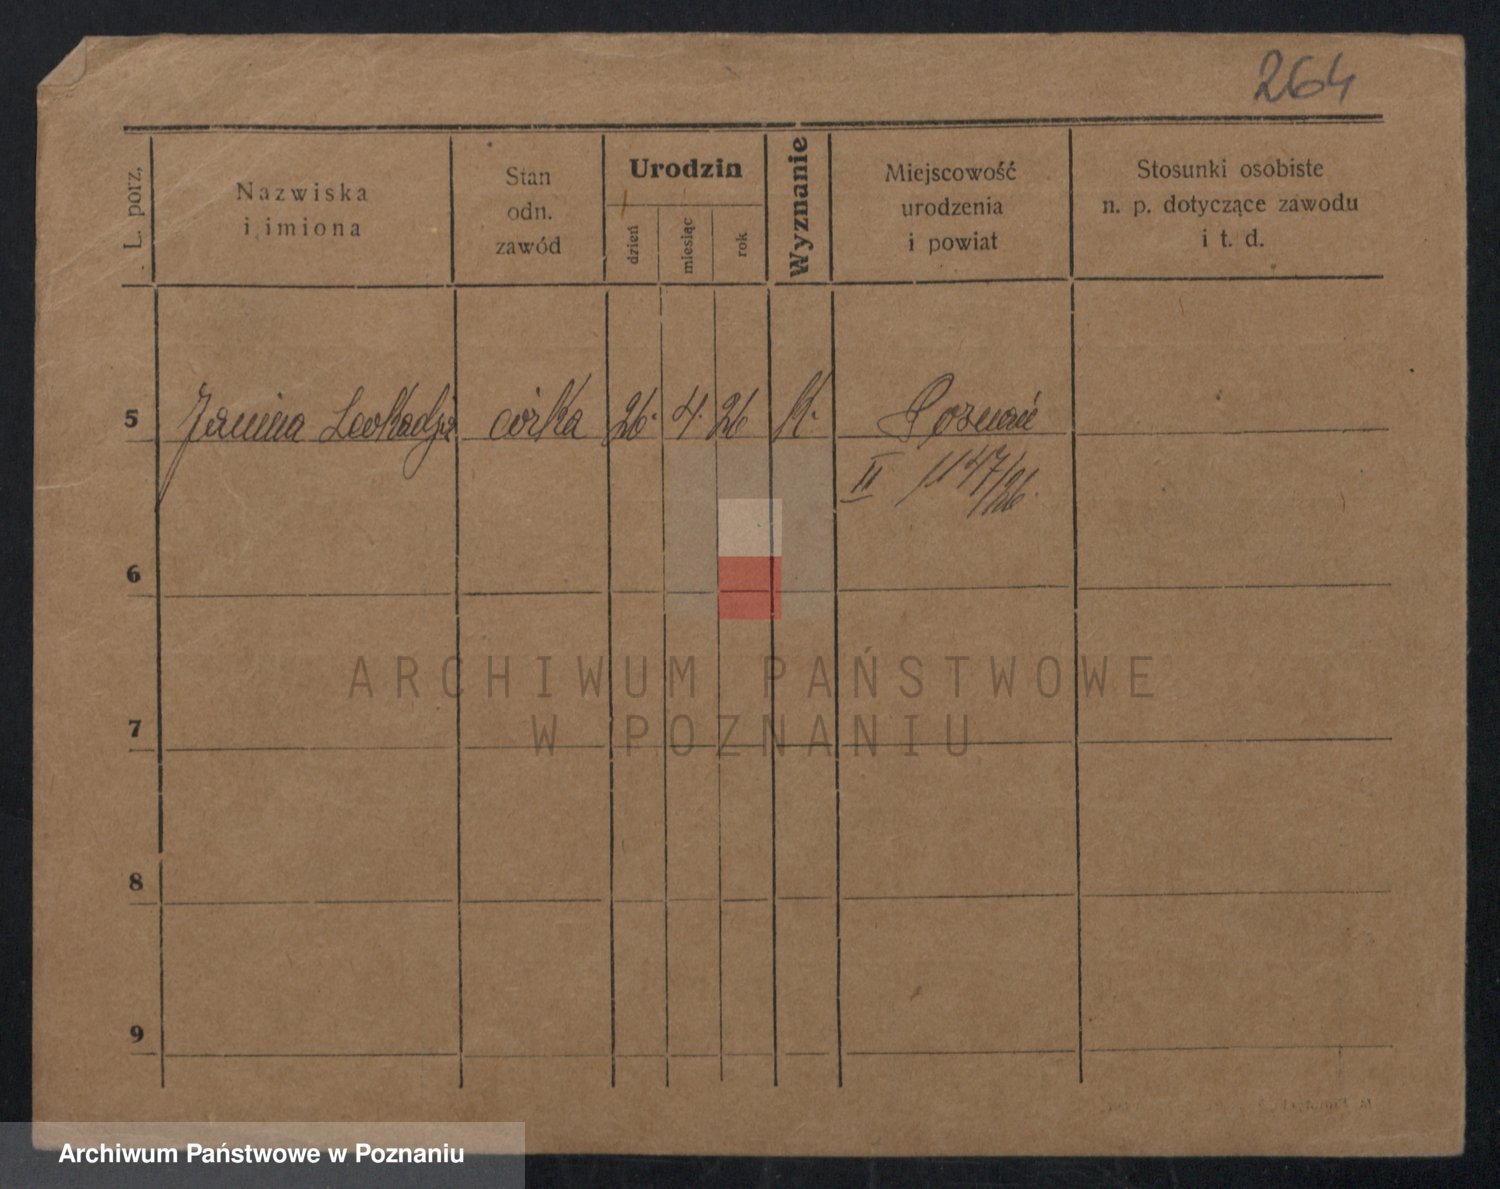 264
L. porz.
Nazwiska
i imiona
Stan
odn.
zawód
Urodzin
dzień
miesiąc
rok
Wyznanie
Miejscowość
urodzenia
i powiat
Stosunki osobiste
n. p. dotyczące zawodu
i t. d.
5 Janina Leokadja córka 26. 4. 26 K. Poznań
II 1147/26.
6
7
8
9
ARCHIWUM PAŃSTWOWE
W POZNANIU
Archiwum Państwowe w Poznaniu